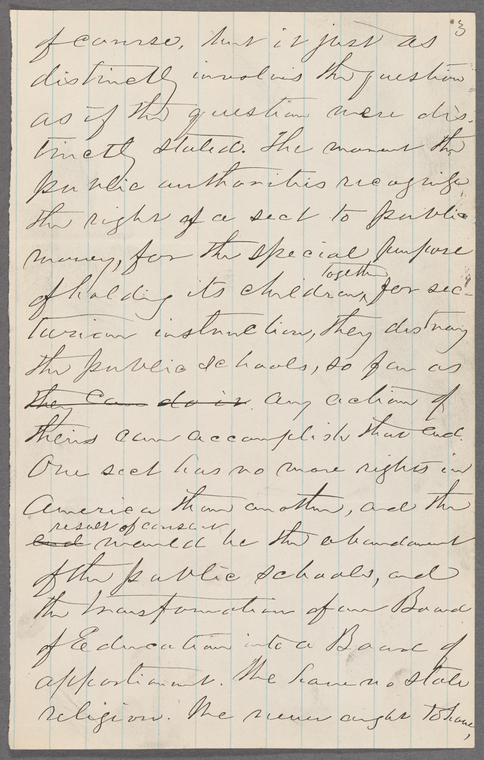 3
of course, but it just as
distinctly involves the question
as if the question were dis-
tinctly stated. The moment the
public authorities recognize
the right of a sect to public
money, for the special purpose
together
of holding its children, for sec-
tarian instruction, they destroy
the public schools, so far as
they can do it. any action of
theirs can accomplish that end.
One sect has no more rights in
America than another, and the
result of consent
end would be the abandonment
of the public schools, and
the transformation of our Board
of Education into a Board of
apportionment. We have no state
religion. We never ought to have,